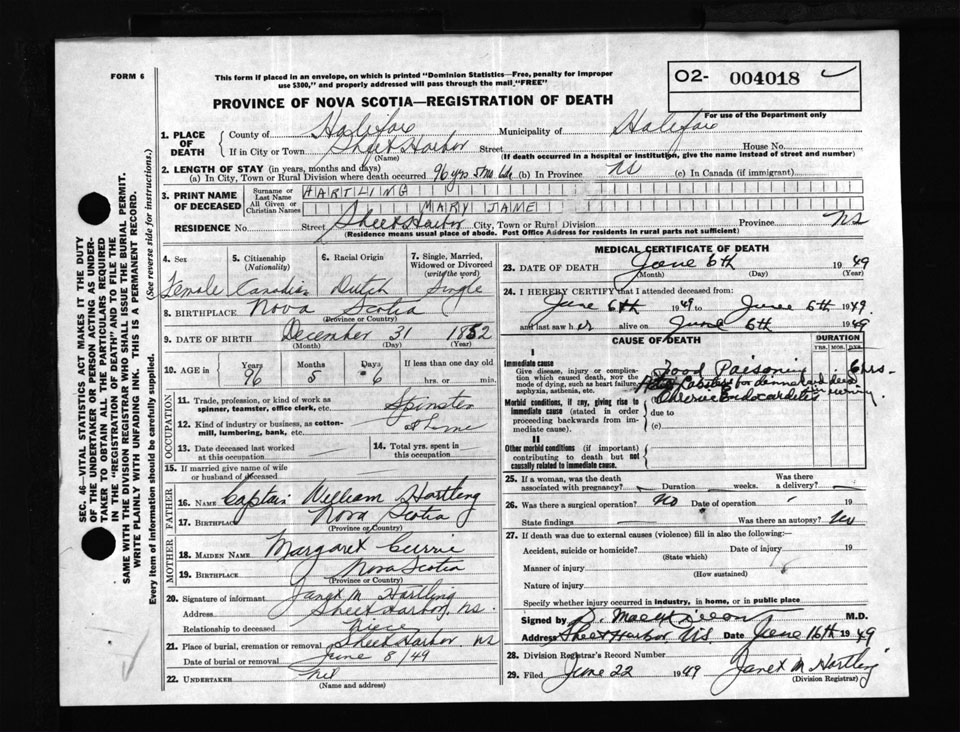 FORM 6
This form if placed in an envelope, on which is printed "Dominion Statistics—Free, penalty for improper
use $300," and properly addressed will pass through the mail "FREE"
O2- 004018
For use of the Department only
PROVINCE OF NOVA SCOTIA—REGISTRATION OF DEATH
SEC. 46—VITAL STATISTICS ACT MAKES IT THE DUTY
OF THE UNDERTAKER OR PERSON ACTING AS UNDER-
TAKER TO OBTAIN ALL THE PARTICULARS REQUIRED
IN THE "REGISTRATION OF DEATH" AND TO FILE THE
SAME WITH THE DIVISION REGISTRAR WHO SHALL ISSUE THE BURIAL PERMIT.
WRITE PLAINLY WITH UNFADING INK. THIS IS A PERMANENT RECORD.
Every item of information should be carefully supplied. (See reverse side for instructions.)
1. PLACE OF DEATH County of Halifax Municipality of Halifax
If in City or Town Sheet Harbor Street House No.
(Name) (If death occurred in a hospital or institution, give the name instead of street and number)
2. LENGTH OF STAY (in years, months and days)
(a) In City, Town or Rural Division where death occurred 96 yrs 5 mo 6 da (b) In Province NS (c) In Canada (if immigrant)
3. PRINT NAME OF DECEASED Surname or Last Name HARTLING
All Given or Christian Names MARY JANE
RESIDENCE No. Street Sheet Harbor City, Town or Rural Division Province NS
(Residence means usual place of abode. Post Office Address for residents in rural parts not sufficient)
4. Sex Female
5. Citizenship (Nationality) Canadian
6. Racial Origin Dutch
7. Single, Married, Widowed or Divorced (write the word) Single
8. BIRTHPLACE Nova Scotia
(Province or Country)
9. DATE OF BIRTH December 31 1852
(Month) (Day) (Year)
10. AGE in Years 96 Months 5 Days 6 If less than one day old
hrs. or min.
OCCUPATION
11. Trade, profession or kind of work as spinner, teamster, office clerk, etc. Spinster
12. Kind of industry or business, as cotton-mill, lumbering, bank, etc. at home
13. Date deceased last worked at this occupation
14. Total yrs. spent in this occupation
15. If married give name of wife or husband of deceased
FATHER
16. Name Captain William Hartling
17. Birthplace Nova Scotia
(Province or Country)
MOTHER
18. MAIDEN NAME Margaret Currie
19. BIRTHPLACE Nova Scotia
(Province or Country)
20. Signature of informant Janet M Hartling
Address Sheet Harbor, NS.
Relationship to deceased Niece
21. Place of burial, cremation or removal Sheet Harbor NS
Date of burial or removal June 8/49
22. UNDERTAKER Nil
(Name and address)
MEDICAL CERTIFICATE OF DEATH
23. DATE OF DEATH June 6th 1949
(Month) (Day) (Year)
24. I HEREBY CERTIFY that I attended deceased from:
June 6th 1949 to June 6th 1949.
and last saw h er alive on June 6th 1949
CAUSE OF DEATH
DURATION
YRS. MOS. DYS.
I
Immediate cause
Give disease, injury or complication which caused death, not the mode of dying, such as heart failure, asphyxia, asthenia, etc.
Food Poisoning 6 hrs.
Lobster for dinner and dead
Morbid conditions, if any, giving rise to immediate cause (stated in order proceeding backwards from immediate cause).
Chronic Endocarditis
due to
(c)
II
Other morbid conditions (if important) contributing to death but not causally related to immediate cause.
25. If a woman, was the death associated with pregnancy? Duration weeks. Was there a delivery?
26. Was there a surgical operation? No Date of operation 19
State findings Was there an autopsy? No
27. If death was due to external causes (violence) fill in also the following:
Accident, suicide or homicide? Date of injury 19
(State which)
Manner of injury
(How sustained)
Nature of injury
Specify whether injury occurred in industry, in home, or in public place
Signed by M.D.
Address Sheet Harbor NS Date June 16th 1949
28. Division Registrar's Record Number
29. Filed June 22 1949 Janet M Hartling
(Division Registrar)